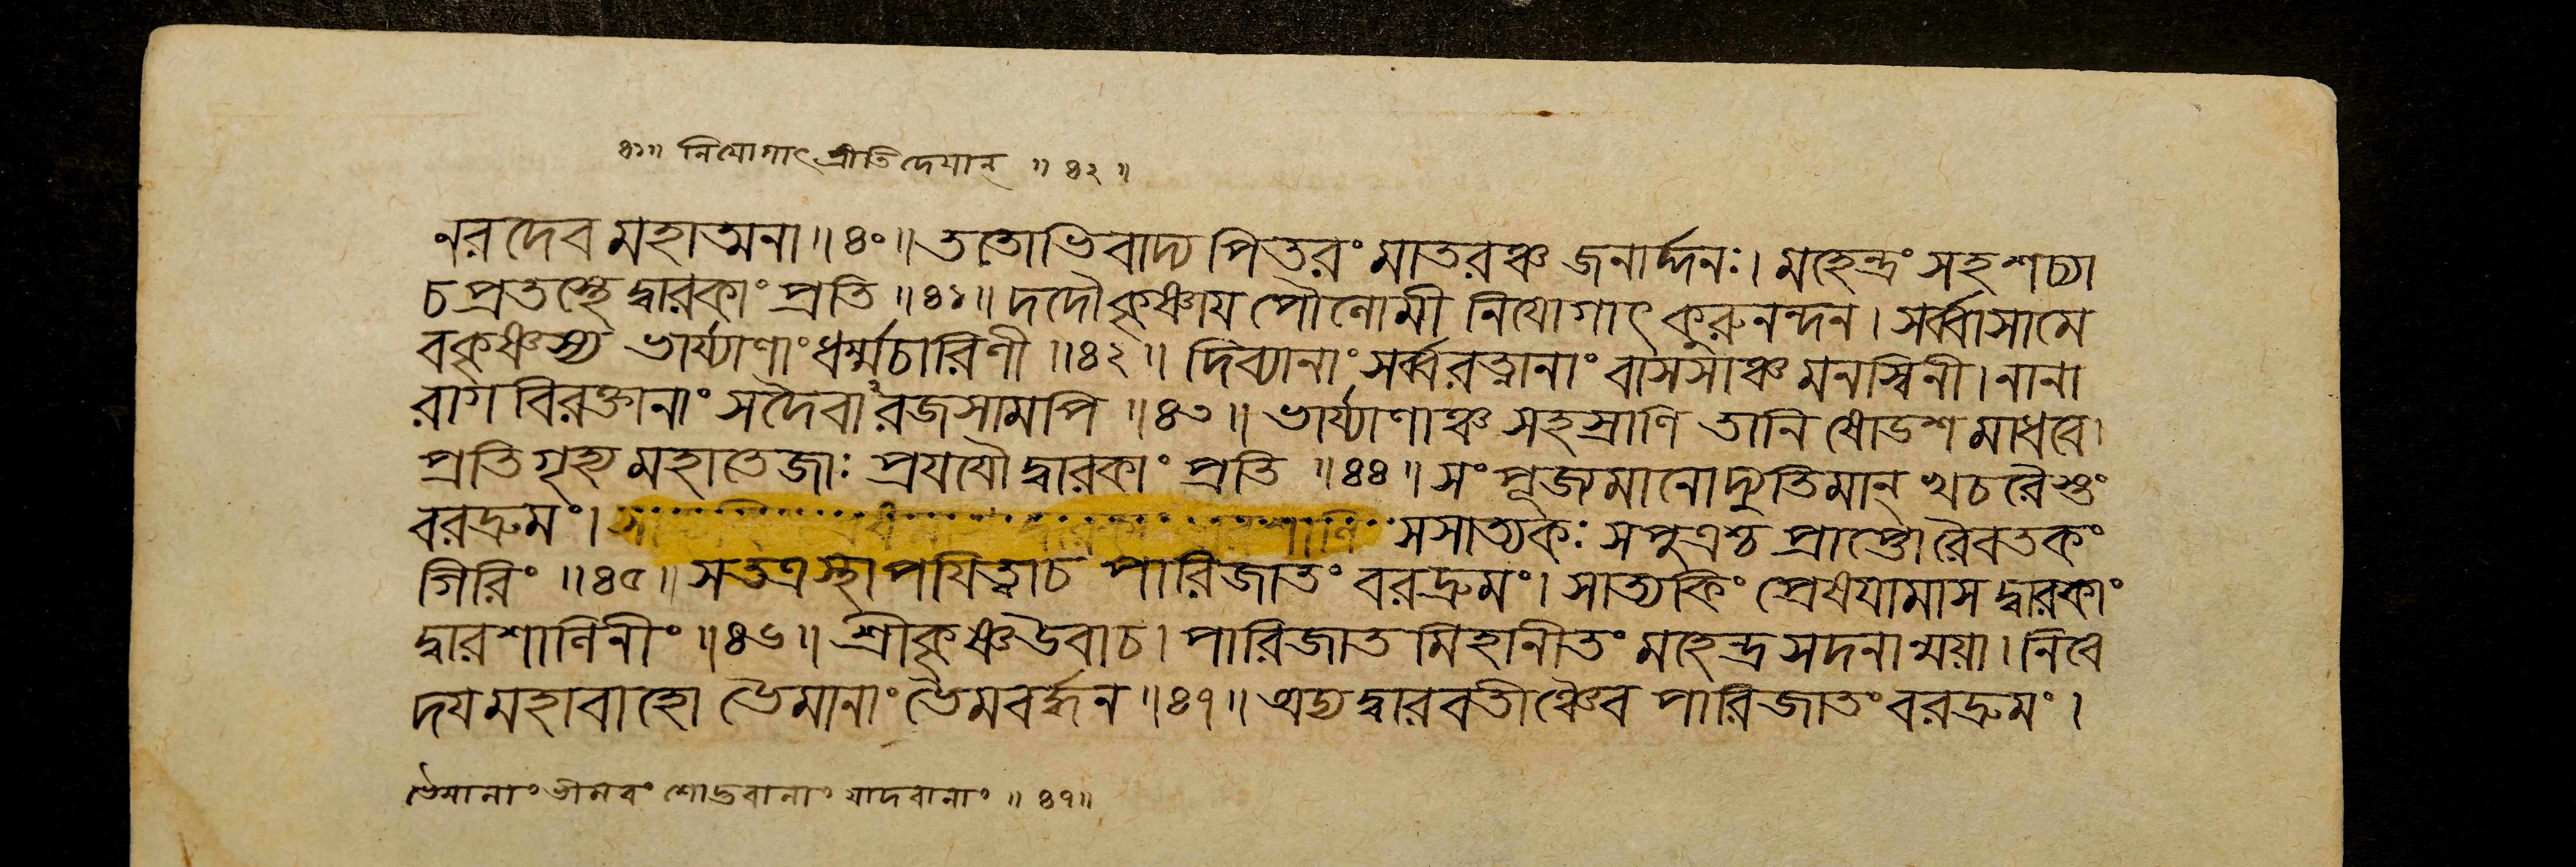 ৪১॥ নিযোগাৎ প্রীতিদেযান্ ॥ ৪২ ॥
নরদেব মহাত্মনা ॥ ৪০ ॥ ততোভিবাদ্য পিতরং মাতরঞ্চ জনার্দ্দনঃ। মহেন্দ্রং সহ শচ্যা
চ প্রতস্থে দ্বারকাং প্রতি ॥ ৪১ ॥ দদৌ কৃষ্ণায পৌলোমী নিযোগাৎ কুরুনন্দন। সর্ব্বাসামে
ব কৃষ্ণস্য ভার্য্যাণাং ধর্ম্মচারিণী ॥ ৪২ ॥ দিব্যানাং সর্ব্বরত্নানাং বাসসাঞ্চ মনস্বিনী। নানা
রাগ বিরক্তানাং সদৈবারজসামপি ॥ ৪৩ ॥ ভার্য্যাণাঞ্চ সহস্রাণি তানি ষোডশ মাধবে।
প্রতিগৃহ্য মহাতেজাঃ প্রযযৌ দ্বারকাং প্রতি ॥ ৪৪ ॥ সংপূজ্যমানো দ্যুতিমান্ খচরৈস্তং
বরদ্রুমং। সসাত্যকঃ সপুত্রশ্চ প্রাপ্তো রৈবতকং
গিরিং ॥ ৪৫ ॥ স তত্র স্থাপযিত্বা চ পারিজাতং বরদ্রুমং। সাত্যকিং প্রেষযামাস দ্বারকাং
দ্বারশালিনীং ॥ ৪৬ ॥ শ্রীকৃষ্ণ উবাচ। পারিজাতমিহানীতং মহেন্দ্র সদনান্ময়া। নিবে
দয মহাবাহো ভৈমানাং ভৈমবর্দ্ধন ॥ ৪৭ ॥ অদ্য দ্বারবতীঞ্চৈব পারিজাতং বরদ্রুমং।
ভৈমানাং ভীমবংশোদ্ভবানাং যাদবানাং ॥ ৪৭ ॥